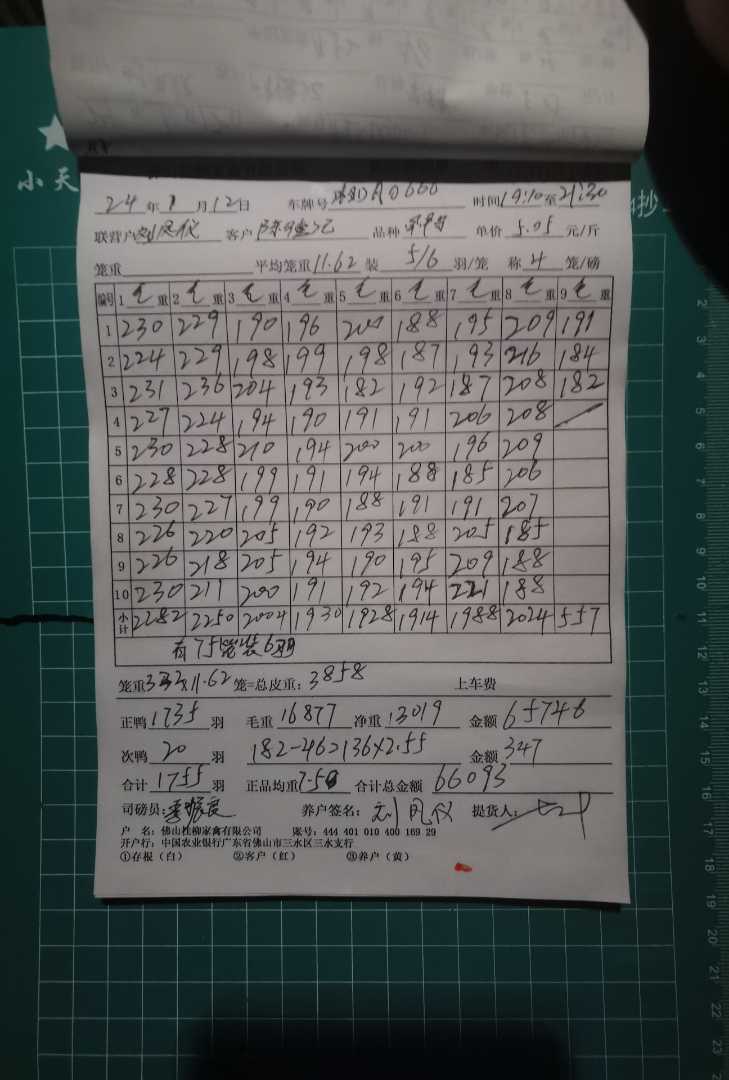 小天
24年1月12日 车牌号 A0666 时间19:10至21:30
联营户刘凤仪 客户 品种 单价5.05元/斤
笼重 平均笼重11.62 装5/6羽/笼 称4笼/磅
编号 1毛重 2毛重 3毛重 4毛重 5毛重 6毛重 7毛重 8毛重 9毛重
1 230 229 190 196 200 188 195 209 191
2 224 229 198 199 198 187 193 216 184
3 231 236 204 193 182 192 187 208 182
4 227 224 194 190 191 191 206 208
5 230 228 210 194 200 200 196 209
6 228 228 199 191 194 188 185 206
7 230 227 199 190 188 191 191 207
8 226 220 205 192 193 188 205 185
9 226 218 205 194 190 195 209 188
10 230 211 200 191 192 194 221 188
小计 2282 2250 2004 1930 1928 1914 1988 2024 557
有75笼装6羽
笼重332x11.62笼=总皮重:3858 上车费
正鸭1735羽 毛重16877 净重13019 金额65746
次鸭20羽 182-46=136x2.55 金额347
合计1755羽 正品均重7.50 合计总金额66093
司磅员: 养户签名:刘凤仪 提货人:
户 名:佛山桂柳家禽有限公司 账号:444 401 010 400 169 29
开户行:中国农业银行广东省佛山市三水区三水支行
①存根(白) ②客户(红) ③养户(黄)